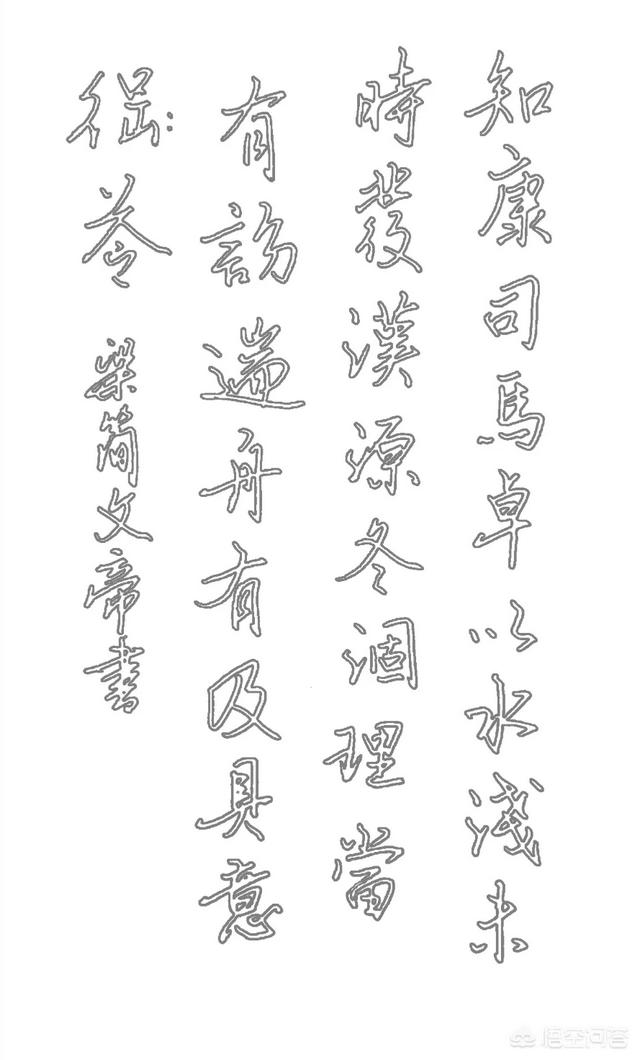 知康司馬卓以水淺未
時發漢源冬涸理當
有訪遄舟有及具意
徭答
梁简文帝書
悟空问答